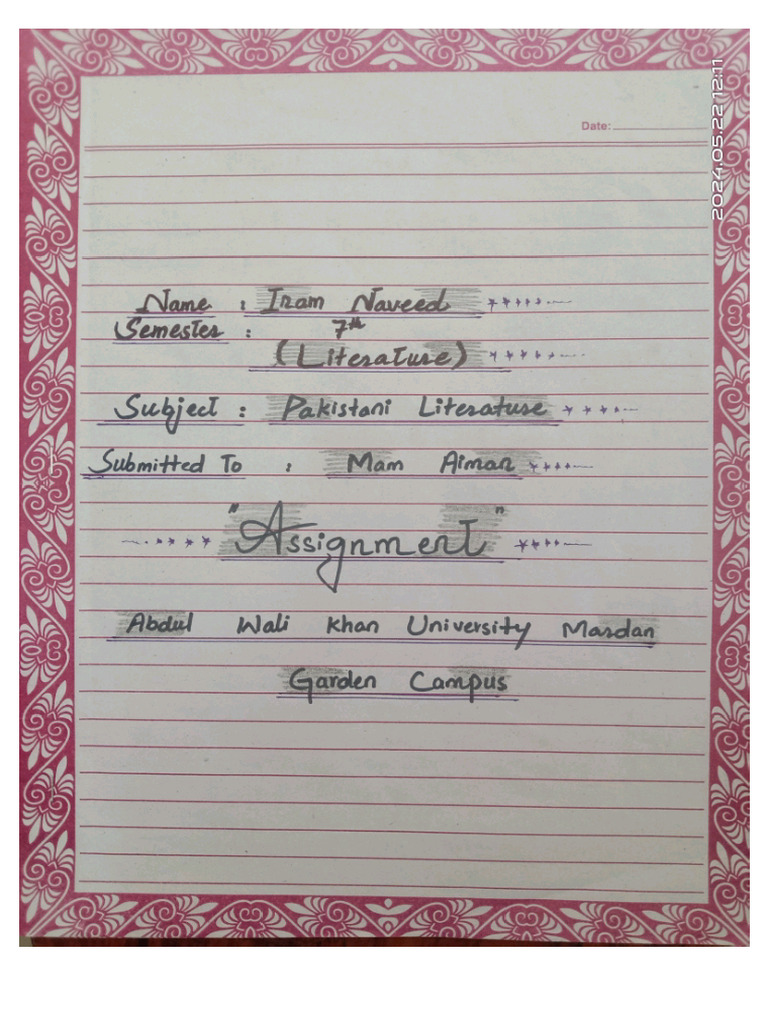 2024.05.22 12:11
Date:
Name : Iram Naveed
Semester : 7th
(Literature)
Subject : Pakistani Literature
Submitted To : Mam Aiman
"Assignment"
Abdul Wali Khan University Mardan
Garden Campus